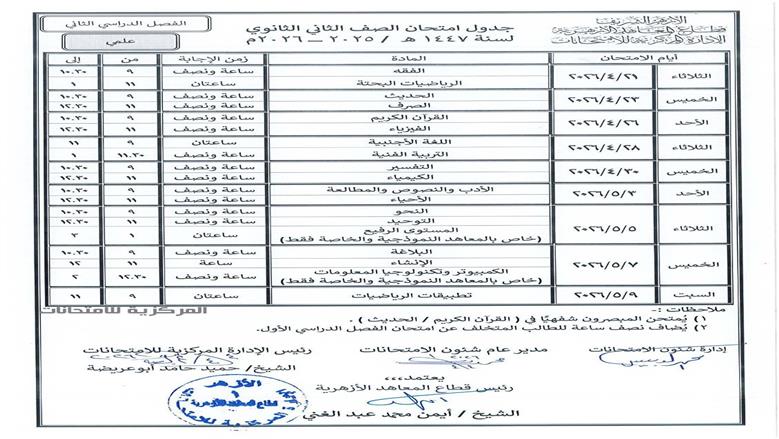 الأزهر الشريف
قطاع المعاهد الأزهرية
الإدارة المركزية للامتحانات
جدول امتحان الصف الثاني الثانوي
لسنة ١٤٤٧ هـ / ٢٠٢٥ – ٢٠٢٦م
الفصل الدراسي الثاني
علمي
أيام الامتحان المادة زمن الإجابة من إلى
الثلاثاء ٢٠٢٦/٤/٢١ الفقه ساعة ونصف ٩ ١٠.٣٠
الرياضيات البحتة ساعتان ١١ ١
الخميس ٢٠٢٦/٤/٢٣ الحديث ساعة ونصف ٩ ١٠.٣٠
الصرف ساعة ونصف ١١ ١٢.٣٠
الأحد ٢٠٢٦/٤/٢٦ القرآن الكريم ساعة ونصف ٩ ١٠.٣٠
الفيزياء ساعة ونصف ١١ ١٢.٣٠
الثلاثاء ٢٠٢٦/٤/٢٨ اللغة الأجنبية ساعتان ٩ ١١
التربية الفنية ساعة ونصف ١١.٣٠ ١
الخميس ٢٠٢٦/٤/٣٠ التفسير ساعة ونصف ٩ ١٠.٣٠
الكيمياء ساعة ونصف ١١ ١٢.٣٠
الأحد ٢٠٢٦/٥/٣ الأدب والنصوص والمطالعة ساعة ونصف ٩ ١٠.٣٠
الأحياء ساعة ونصف ١١ ١٢.٣٠
الثلاثاء ٢٠٢٦/٥/٥ النحو ساعة ونصف ٩ ١٠.٣٠
التوحيد ساعة ونصف ١١ ١٢.٣٠
المستوى الرفيع ساعتان ١ ٣
(خاص بالمعاهد النموذجية والخاصة فقط)
الخميس ٢٠٢٦/٥/٧ البلاغة ساعة ونصف ٩ ١٠.٣٠
الإنشاء ساعة ١١ ١٢
الكمبيوتر وتكنولوجيا المعلومات ساعة ونصف ١٢.٣٠ ٢
(خاص بالمعاهد النموذجية والخاصة فقط)
السبت ٢٠٢٦/٥/٩ تطبيقات الرياضيات ساعتان ٩ ١١
المركزية للامتحانات
ملاحظات :-
١) يُمتحن المبصرون شفهيًا في ( القرآن الكريم / الحديث ) .
٢) يُضاف نصف ساعة للطالب المتخلف عن امتحان الفصل الدراسي الأول.
إدارة شئون الامتحانات مدير عام شئون الامتحانات رئيس الإدارة المركزية للامتحانات
الشيخ/ حميد حامد أبوعريضة
يعتمد،،،
رئيس قطاع المعاهد الأزهرية
الشيخ / أيمن محمد عبد الغني
الأزهر